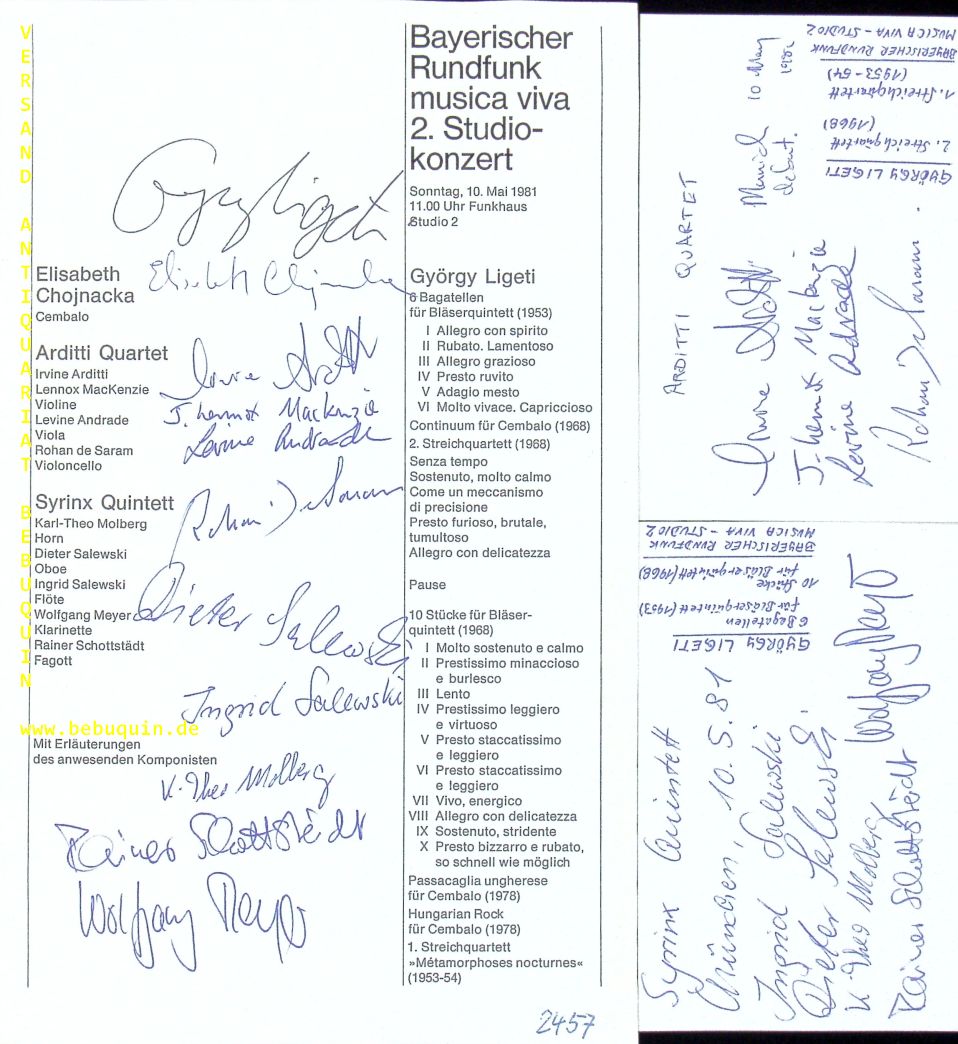 VERSAND ANTIQUARIAT BEBUQUIN
www.bebuquin.de
Bayerischer
Rundfunk
musica viva
2. Studio-
konzert
Sonntag, 10. Mai 1981
11.00 Uhr Funkhaus
Studio 2
Elisabeth
Chojnacka
Cembalo
Elisabeth Chojnacka
Arditti Quartet
Irvine Arditti
Lennox MacKenzie
Violine
Levine Andrade
Viola
Rohan de Saram
Violoncello
Irvine Arditti
J. Lennox Mackenzie
Levine Andrade
Rohan de Saram
Syrinx Quintett
Karl-Theo Molberg
Horn
Dieter Salewski
Oboe
Ingrid Salewski
Flöte
Wolfgang Meyer
Klarinette
Rainer Schottstädt
Fagott
Dieter Salewski
Ingrid Salewski
Mit Erläuterungen
des anwesenden Komponisten
K-Theo Molberg
Rainer Schottstädt
Wolfgang Meyer
György Ligeti
6 Bagatellen
für Bläserquintett (1953)
I Allegro con spirito
II Rubato. Lamentoso
III Allegro grazioso
IV Presto ruvito
V Adagio mesto
VI Molto vivace. Capriccioso
Continuum für Cembalo (1968)
2. Streichquartett (1968)
Senza tempo
Sostenuto, molto calmo
Come un meccanismo
di precisione
Presto furioso, brutale,
tumultoso
Allegro con delicatezza
Pause
10 Stücke für Bläser-
quintett (1968)
I Molto sostenuto e calmo
II Prestissimo minaccioso
e burlesco
III Lento
IV Prestissimo leggiero
e virtuoso
V Presto staccatissimo
e leggiero
VI Presto staccatissimo
e leggiero
VII Vivo, energico
VIII Allegro con delicatezza
IX Sostenuto, stridente
X Presto bizzarro e rubato,
so schnell wie möglich
Passacaglia ungherese
für Cembalo (1978)
Hungarian Rock
für Cembalo (1978)
1. Streichquartett
»Métamorphoses nocturnes«
(1953-54)
2457
ARDITTI QUARTET
Munich
debut.
10 May
Irvine Arditti
J. Lennox Mackenzie
Levine Andrade
Rohan de Saram.
GYÖRGY LIGETI
2. Streichquartett
(1968)
1. Streichquartett
(1953-54)
BAYERISCHER RUNDFUNK
MUSICA VIVA - STUDIO 2
GYÖRGY LIGETI
6 Bagatellen
für Bläserquintett (1953)
10 Stücke
für Bläserquintett (1968)
BAYERISCHER RUNDFUNK
MUSICA VIVA - STUDIO 2
Syrinx Quintett
München, 10.5.81
Ingrid Salewski
Dieter Salewski
K-Theo Molberg
Rainer Schottstädt
Wolfgang Meyer